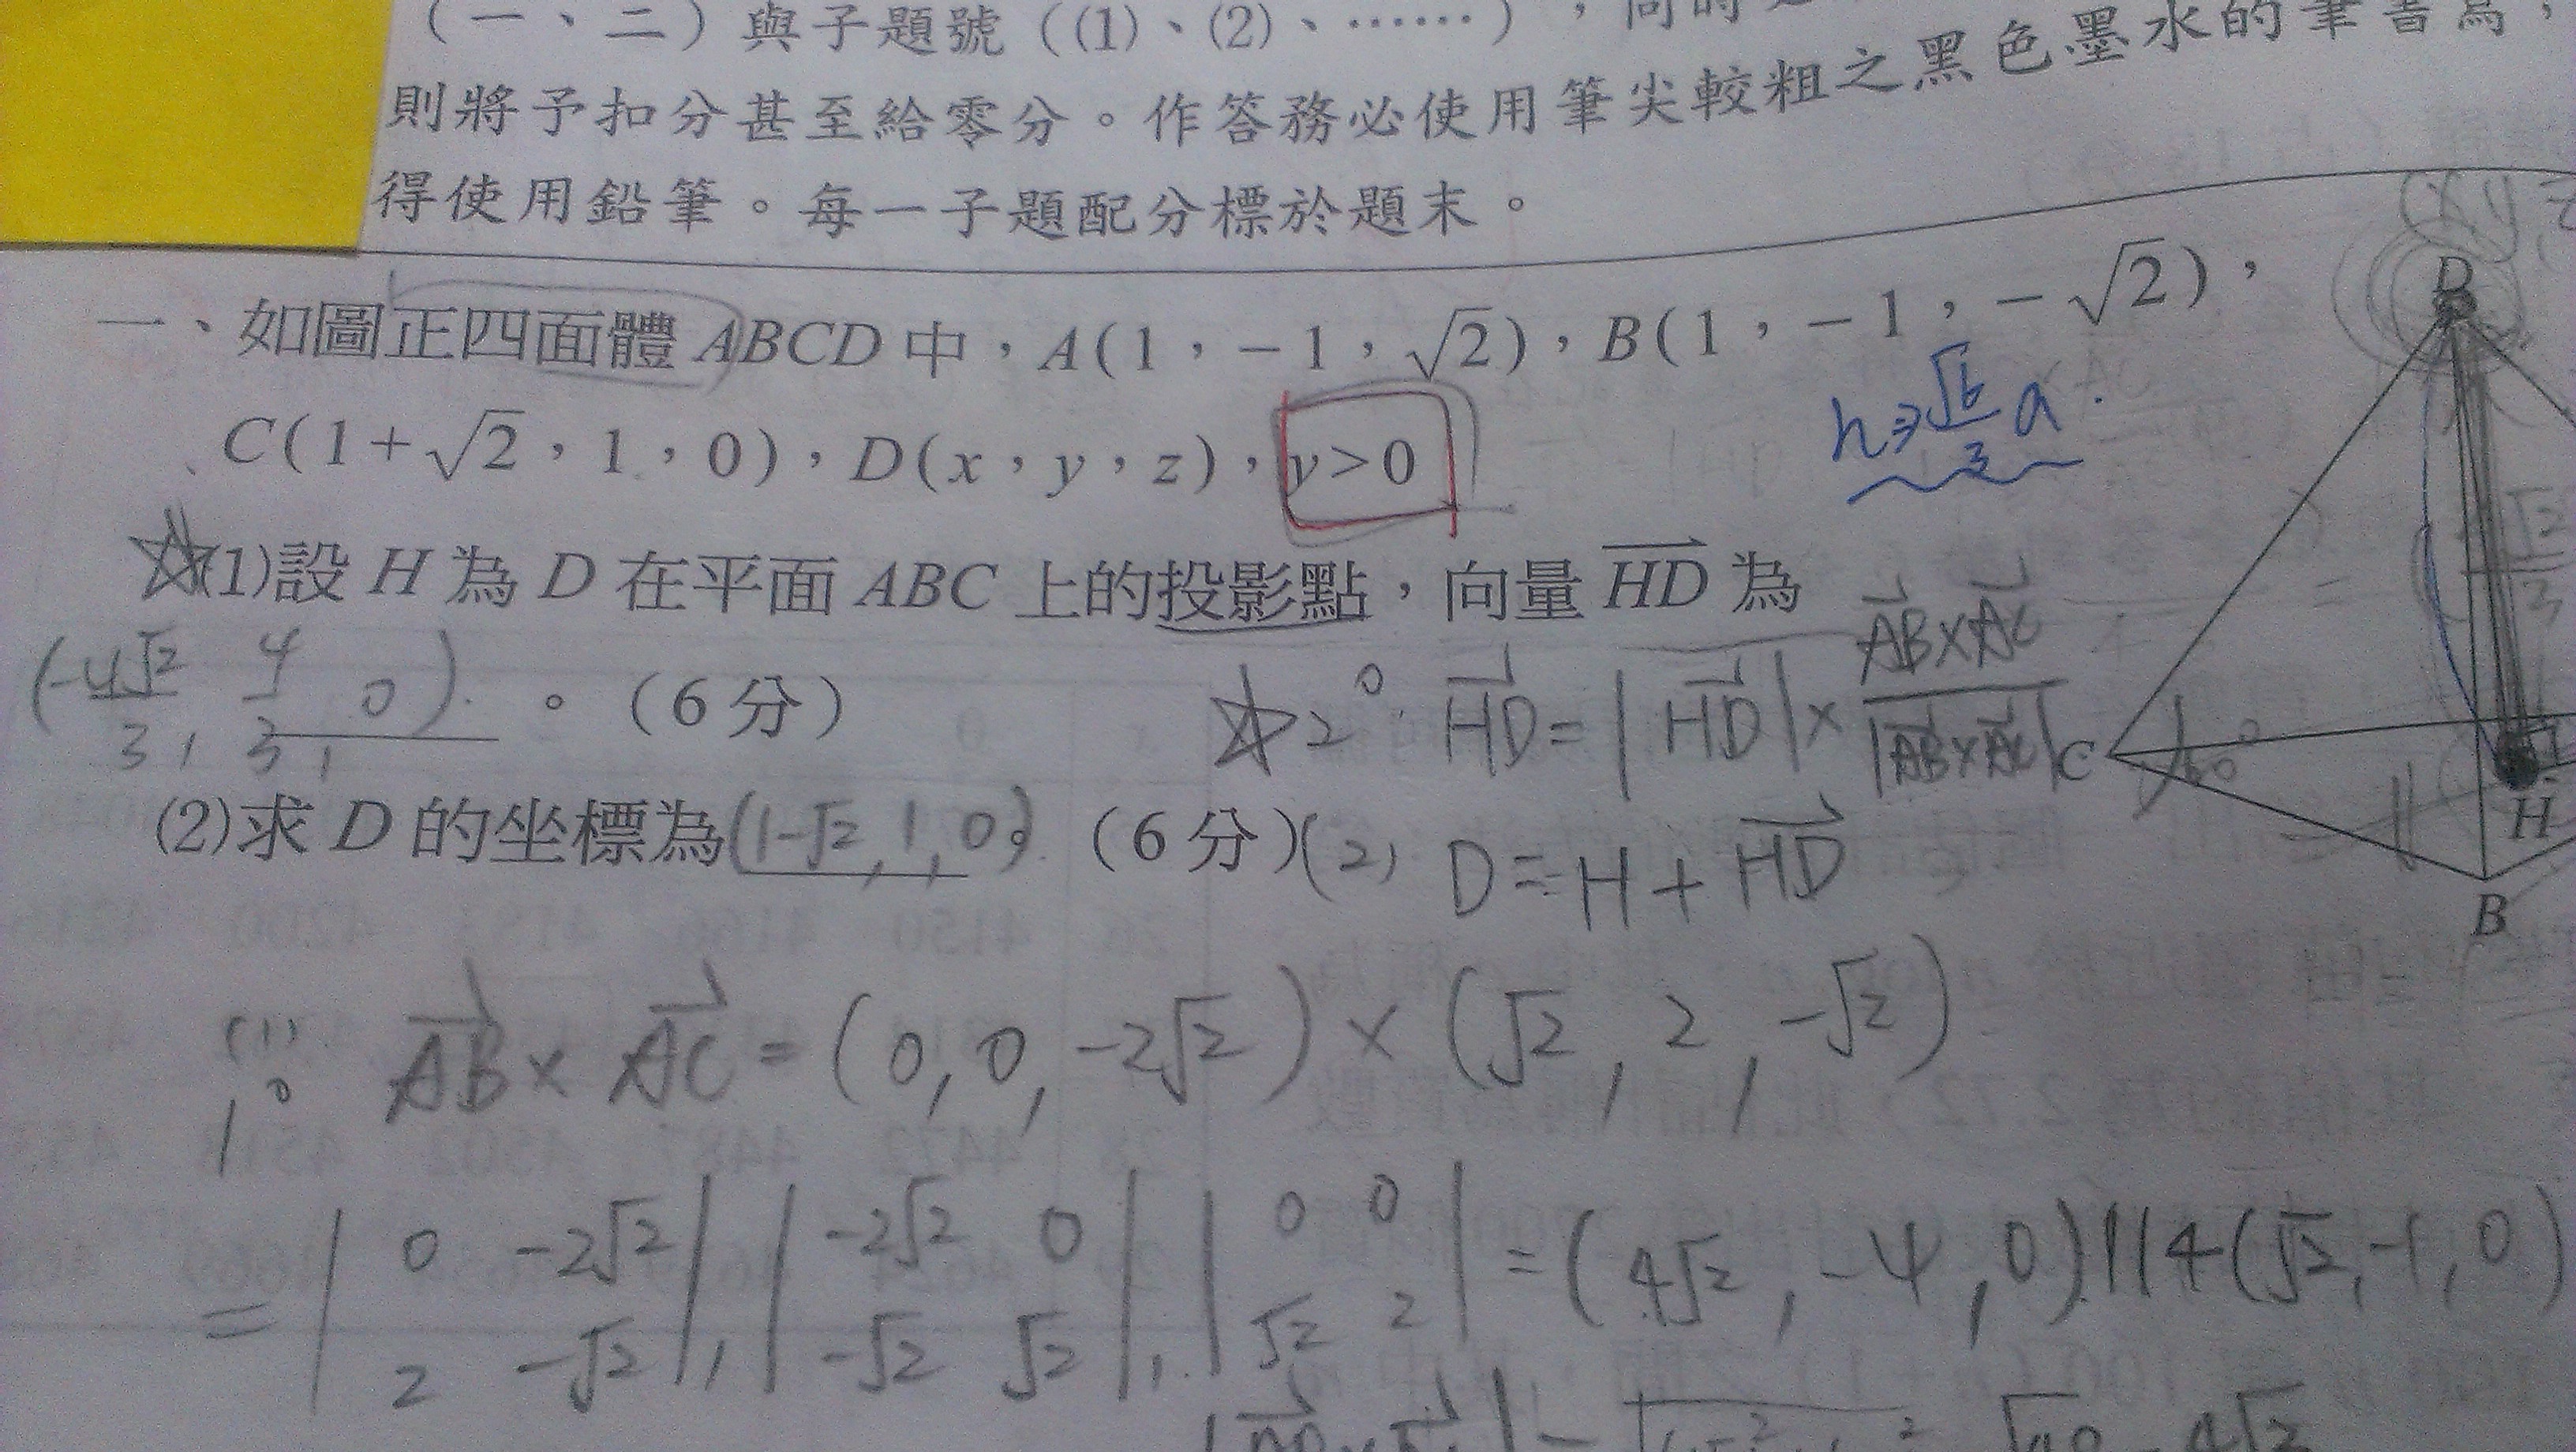 （一、二）與子題號（(1)、(2)、……），同時
則將予扣分甚至給零分。作答務必使用筆尖較粗之黑色墨水的筆書寫，
得使用鉛筆。每一子題配分標於題末。
一、如圖正四面體 ABCD 中，A(1，-1，√2)，B(1，-1，-√2)，
C(1+√2，1，0)，D(x，y，z)，y>0
h⇒√6/3 a
(1)設 H 為 D 在平面 ABC 上的投影點，向量 HD 為
(-4√2/3, 4/3, 0)。（6 分）
2° HD = |HD| × AB×AC/|AB×AC|
(2)求 D 的坐標為(1-√2, 1, 0)。（6 分）
(2) D = H + HD
D
C
60°
H
B
(1) 1° AB × AC = (0, 0, -2√2) × (√2, 2, -√2)
= | 0 -2√2 |, | -2√2 0 |, | 0 0 | = (4√2, -4, 0) // 4(√2, -1, 0)
| 2 -√2 |, | -√2 √2 |, | √2 2 |